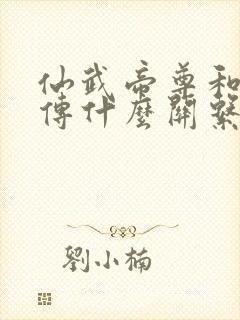 仙武帝尊和
傳什麼關繫
劉小楠